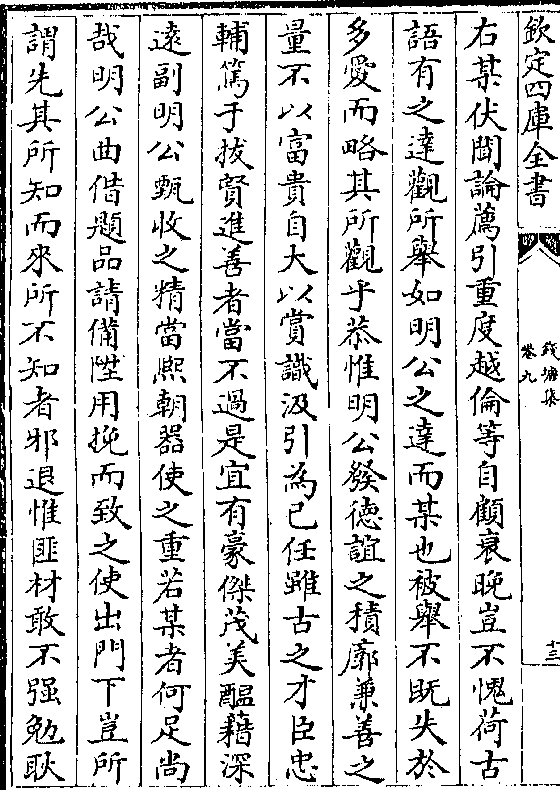 欽定四庫全書
錢塘集
卷九
十三
右某伏聞論薦引重度越倫等自顧衰晚豈不愧荷古
語有之達觀所舉如明公之達而某也被舉不既失於
多愛而略其所觀乎恭惟明公發德誼之積廓兼善之
量不以富貴自大以賞識汲引為己任雖古之才臣忠
輔篤于拔賢進善者當不過是宜有豪傑茂美醖藉深
逺副明公甄收之精當熈朝器使之重若某者何足尚
哉明公曲借題品請備陞用挽而致之使出門下豈所
謂先其所知而來所不知者邪退惟匪材敢不强勉耿